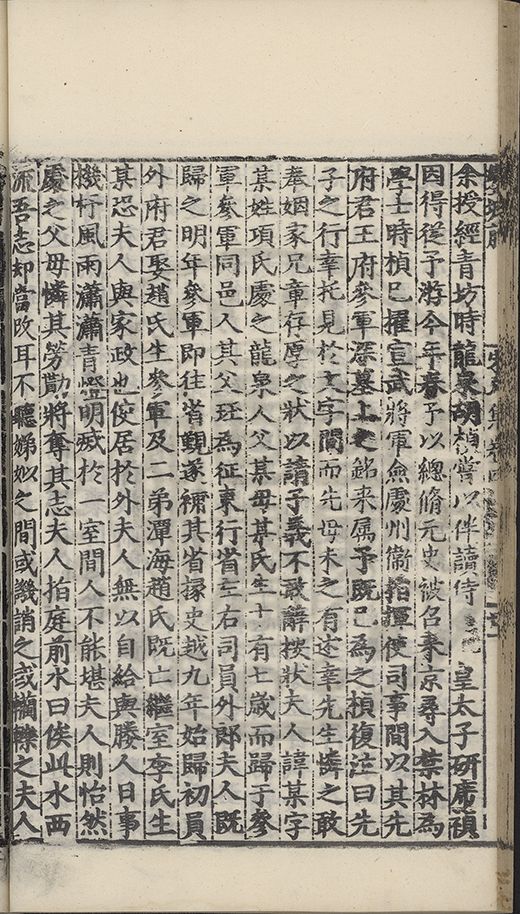 余授經青坊時龍泉胡楨嘗以伴讀侍 皇太子研席楨
因得從予游今年春予以總脩元史被召來京尋入禁林為
學士時楨已擢宣武將軍僉處州衞指揮使司事間以其先
府君王府參軍深墓上之銘来属予既已為之楨復泣曰先
子之行幸托見於文字間而先母未之有述幸先生憐之敢
奉姻家兄章存厚之狀以請予義不敢辭按狀夫人諱某字
某姓項氏處之龍泉人父某母某氏生十有七歲而歸于參
軍參軍同邑人其父珏為征東行省左右司員外郎夫人既
歸之明年參軍即往省覲遂補其省掾史越九年始歸初員
外府君娶趙氏生參軍及二弟潭海趙氏既亡繼室李氏生
某恐夫人與家政也使居於外夫人無以自給與媵人日事
機杼風雨瀟瀟青燈明滅於一室間人不能堪夫人則怡然
處之父母憐其勞勩將奪其志夫人指庭前水曰俟此水西
流吾志却當改耳不聽娣姒之間或譏誚之或轥轢之夫人